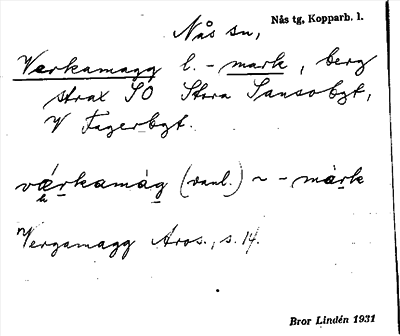 Nås sn,
Nås tg, Kopparb. l.
Verkamagg l. -mark, berg
strax SO Stora Tansobgt,
V Fagerbgt.
värkamàg (vanl.) ~ -màrk
Vergamagg Aros., s. 14.
Bror Lindén 1931